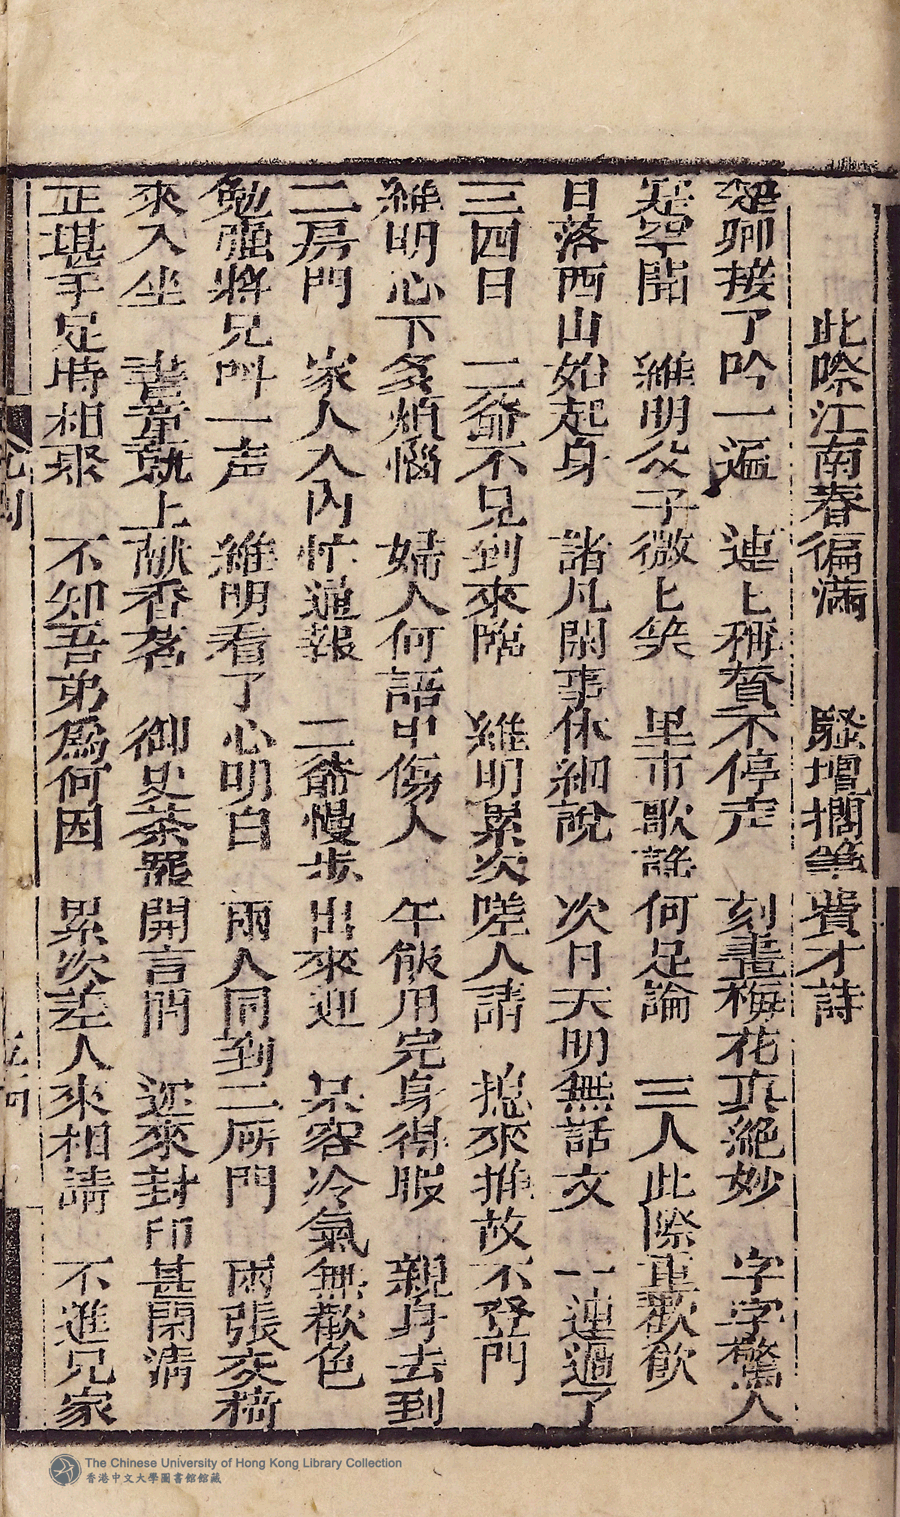 此際江南春徧滿　騷壇擱筆費才詩
楚卿接了吟一遍　連匕稱賛不停声　刻畫梅花真絕妙　字字驚人
疑罕聞　維明父子微匕笑　里市歌謠何足論　三人此際重歡飲
日落西山始起身　諸凡閑事休細說　次日天明無話文　一連過了
三四日　二爺不見到來臨　維明累次嗟人請　搃來推故不登門
維明心下多煩惱　婦人何語中傷人　午飯用完身得暇　親身去到
二房門　家人入內忙通報　二爺慢步出來迎　呆容冷氣無歡色
勉强將兄叫一声　維明看了心明白　兩人同到二㕔門　兩張交椅
來入坐　書童就上献香茗　御史茶罷開言問　迩來封印甚閑清
正堪手足時相聚　不知吾弟爲何因　累次差人來相請　不進兄家
The Chinese University of Hong Kong Library Collection
香港中文大學圖書館館藏